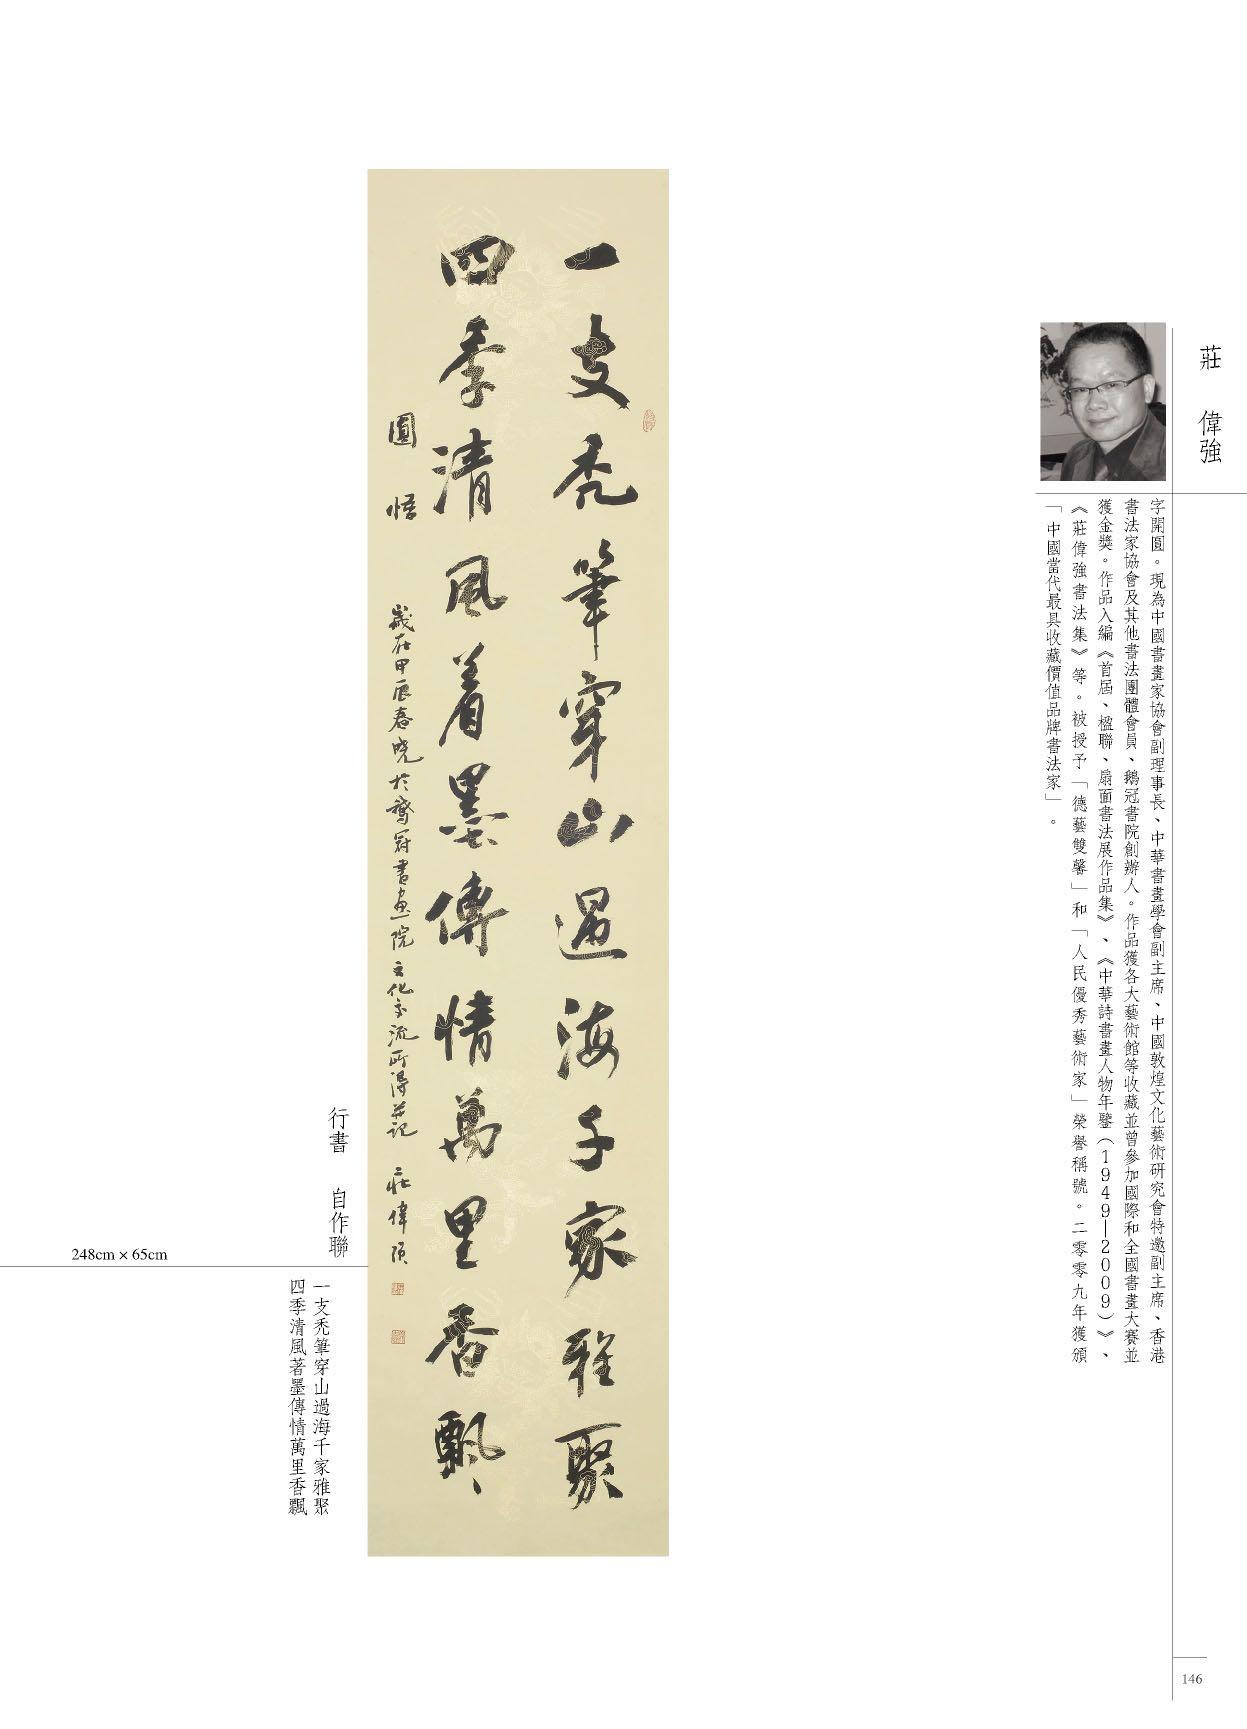 莊 偉強
字開圓。現為中國書畫家協會副理事長、中華書畫學會副主席、中國敦煌文化藝術研究會特邀副主席、香港
書法家協會及其他書法團體會員、鵝冠書院創辦人。作品獲各大藝術館等收藏並曾參加國際和全國書畫大賽並
獲金獎。作品入編《首屆、楹聯、扇面書法展作品集》、《中華詩書畫人物年鑒（1949—2009）》、
《莊偉強書法集》等。被授予「德藝雙馨」和「人民優秀藝術家」榮譽稱號。二零零九年獲頒
「中國當代最具收藏價值品牌書法家」。
一支禿筆穿山過海千家雅聚
四季清風着墨傳情萬里香飄
圓悟
歲在甲辰春曉於鵝冠書畫院文化交流所得並記 莊偉強
行書 自作聯
248cm × 65cm
一支禿筆穿山過海千家雅聚
四季清風著墨傳情萬里香飄
146